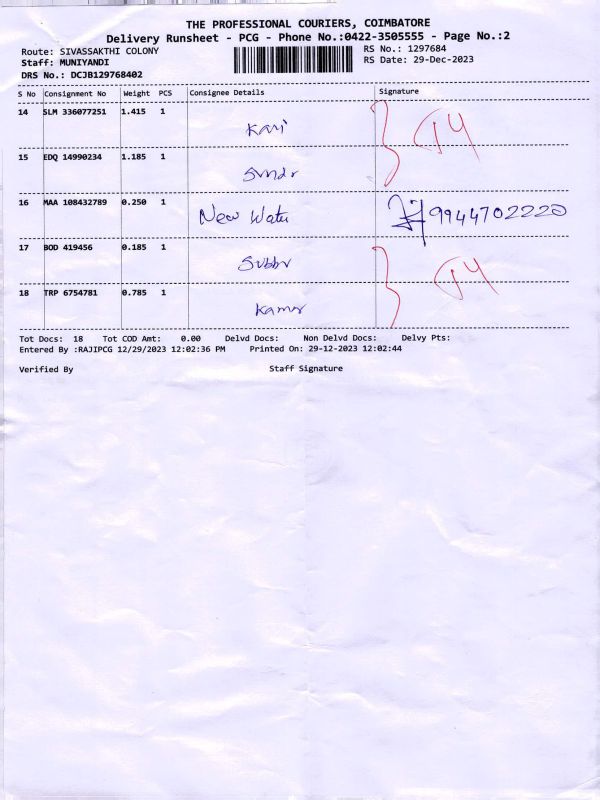 THE PROFESSIONAL COURIERS, COIMBATORE
Delivery Runsheet - PCG - Phone No.:0422-3505555 - Page No.:2
Route: SIVASSAKTHI COLONY RS No.: 1297684
Staff: MUNIYANDI RS Date: 29-Dec-2023
DRS No.: DCJB129768402
S No Consignment No Weight PCS Consignee Details Signature
14 SLM 336077251 1.415 1
Kari
15 EDQ 14990234 1.185 1
16 MAA 108432789 0.250 1
New Water 9944702220
17 BOD 419456 0.185 1
18 TRP 6754781 0.785 1
Tot Docs: 18 Tot COD Amt: 0.00 Delvd Docs: Non Delvd Docs: Delvy Pts:
Entered By :RAJIPCG 12/29/2023 12:02:36 PM Printed On: 29-12-2023 12:02:44
Verified By Staff Signature